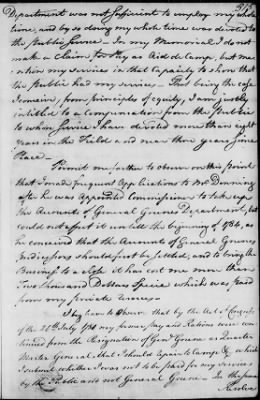 Department was not sufficient to employ my whole
time, and by so doing my whole time was devoted to
the Public Service — In my Memorial I do not
make a Claim for Pay as Aid de Camp, but me
-ntion my services in that Capacity to show that
the Public had my services — That being the case
I conceive, from principles of equity, I am justly
intitled to a compensation from the Public
to whose service I have devoted more than eight
years in the Field and near three years since
Peace —
Permit me farther to observe on this point
that I made frequent Applications to Mr Denning
after he was appointed Commissioner to take up
the Accounts of General Greenes Department, but
could not effect it untill the beginning of 1786, as
he conceived that the Accounts of General Greenes
Predecessors should first be settled, and to bring the
Business to a close it has cost me more than
Two thousand Dollars Specie which was paid
from my private
I beg leave to observe that by the Act of Congress
of the July 1780 my former pay and Rations were con
-tinued from the Resignation of Genl Greene as Quarter
Master General, that I should repair to Camp &c. which
I submit whether I was not to be paid for my services
by the Public and not General Greene — In the same
Resolve